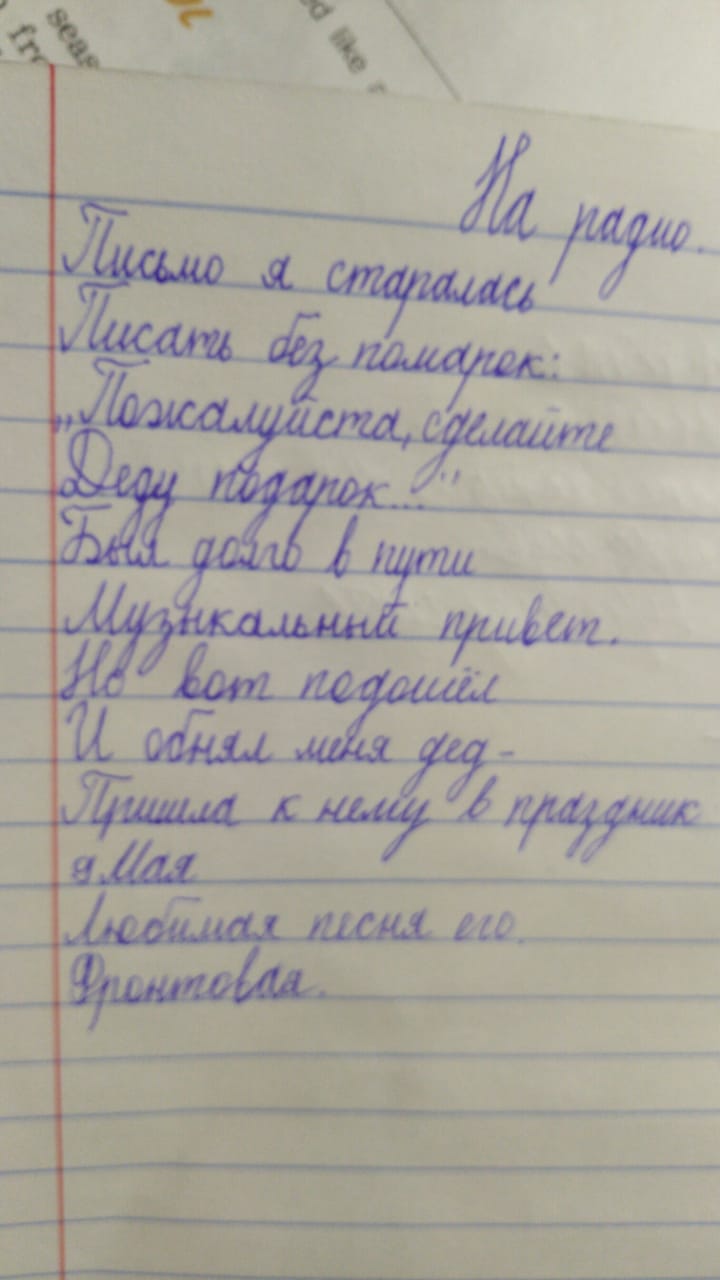 seas
fro
ed like
На радио.
Письмо я старалась
Писать без помарок:
„Пожалуйста, сделайте
Деду подарок..."
Был долго в пути
Музыкальный привет.
Но вот подошёл
И обнял меня дед-
Пришла к нему в праздник
9 Мая
Любимая песня его.
Фронтовая.